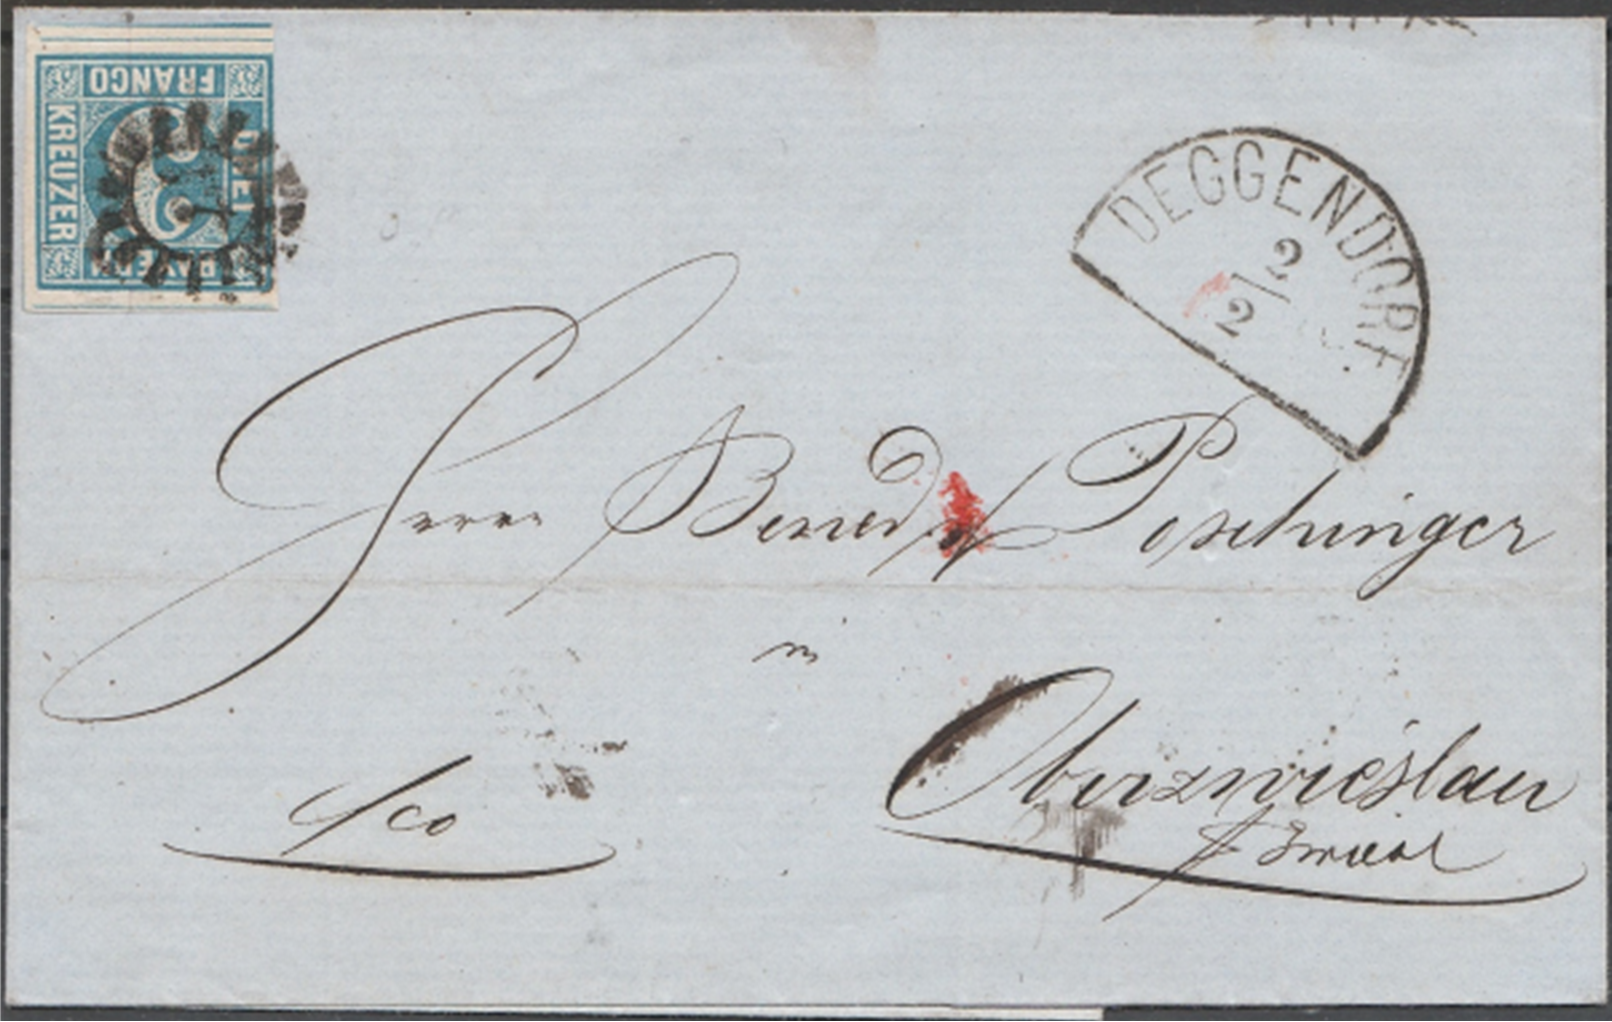 FRANCO
KREUZER
DREI
BAYERN
3
DEGGENDORF
2
2
Herrn Bened v Poschinger
in
Oberzwieslau
p Zwiesel
fco